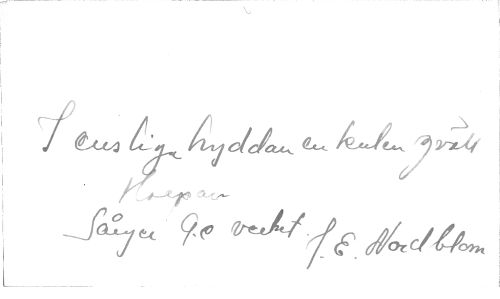 I ensliga hyddan en kulen qväll
Harpan
Sånger 9.e verket. J. E. Nordblom